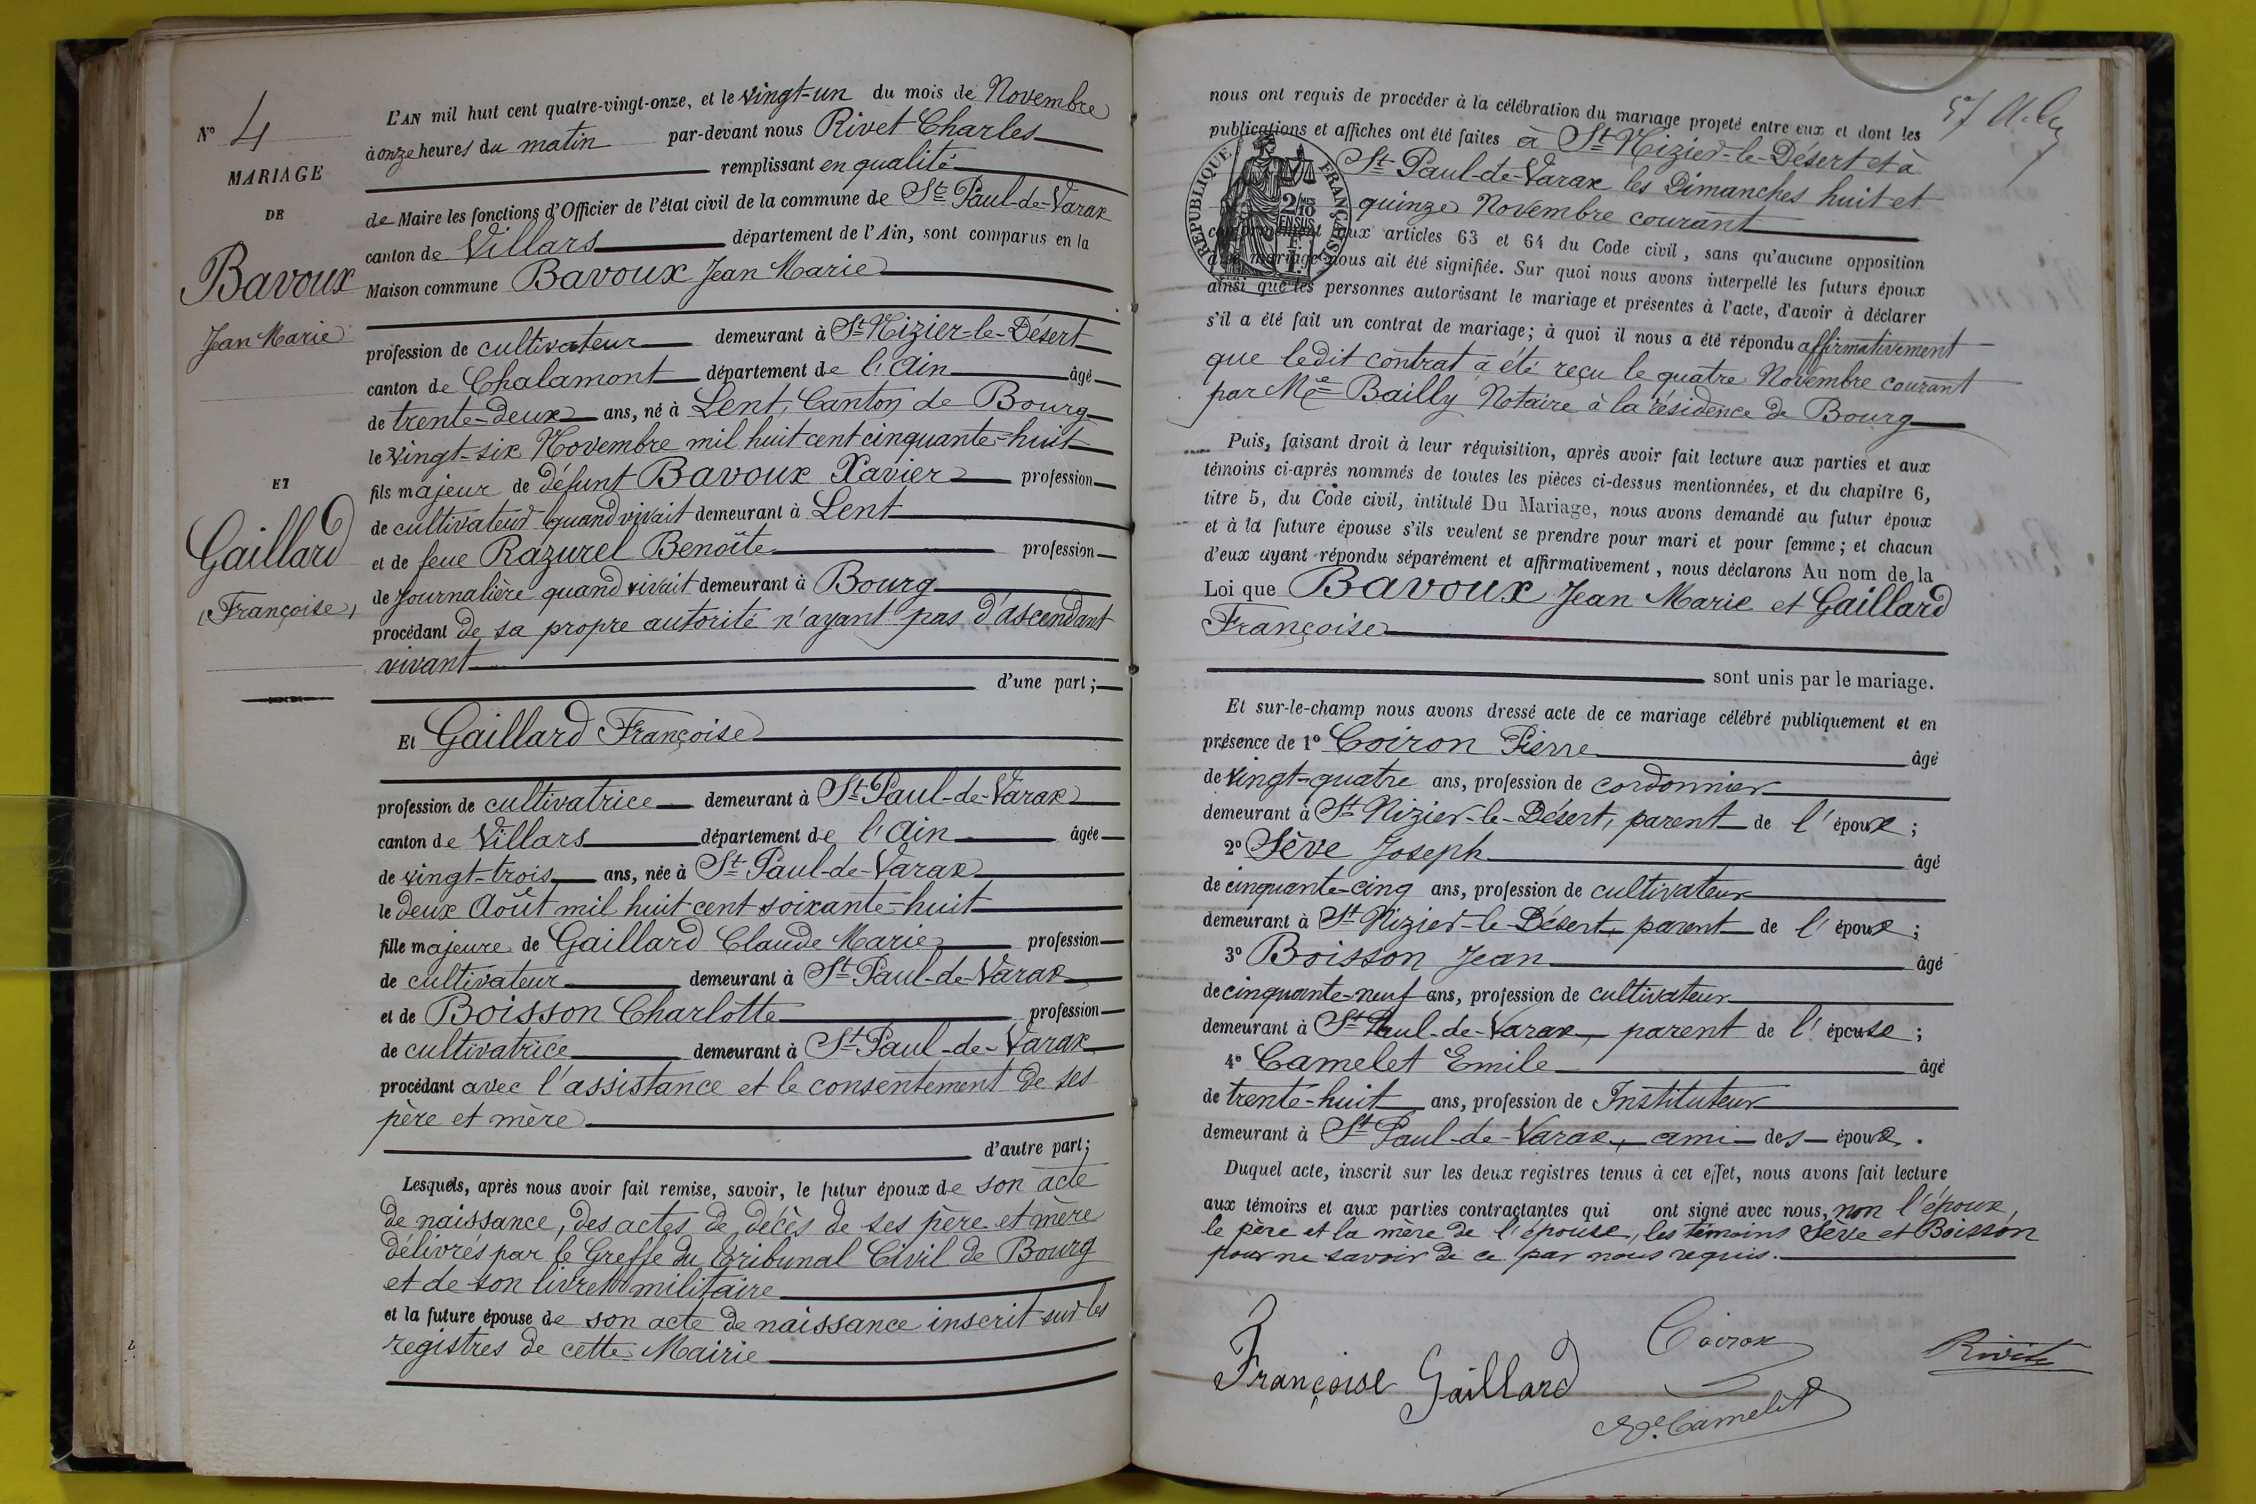 N° 4
MARIAGE
DE
Bavoux
Jean Marie
ET
Gaillard
Françoise
L'AN mil huit cent quatre-vingt-onze, et le vingt-un du mois de Novembre
à onze heures du matin par-devant nous Rivet Charles
remplissant en qualité
de Maire les fonctions d'Officier de l'état civil de la commune de St Paul-de-Varax
canton de Villars département de l'Ain, sont comparus en la
Maison commune Bavoux Jean Marie
profession de cultivateur demeurant à St Nizier-le-Désert
canton de Chalamont département de l'Ain âgé
de trente-deux ans, né à Lent, Canton de Bourg
le vingt-six Novembre mil huit cent cinquante-huit
fils majeur de défunt Bavoux Xavier profession
de cultivateur quand vivait demeurant à Lent
et de feue Razurel Benoîte profession
de journalière quand vivait demeurant à Bourg
procédant de sa propre autorité n'ayant pas d'ascendant
vivant
d'une part;
Et Gaillard Françoise
profession de cultivatrice demeurant à St Paul-de-Varax
canton de Villars département de l'Ain âgée
de vingt-trois ans, née à St Paul-de-Varax
le deux Août mil huit cent soixante-huit
fille majeure de Gaillard Claude Marie profession
de cultivateur demeurant à St Paul-de-Varax
et de Boisson Charlotte profession
de cultivatrice demeurant à St Paul-de-Varax
procédant avec l'assistance et le consentement de ses
père et mère
d'autre part;
Lesquels, après nous avoir fait remise, savoir, le futur époux de son acte
de naissance, des actes de décès de ses père et mère
délivrés par le Greffe du Tribunal Civil de Bourg
et de son livret militaire
et la future épouse de son acte de naissance inscrit sur les
registres de cette Mairie
nous ont requis de procéder à la célébration du mariage projeté entre eux et dont les
publications et affiches ont été faites à St Nizier-le-Désert et à
St Paul-de-Varax les Dimanches huit et
quinze Novembre courant
RÉPUBLIQUE FRANÇAISE
2/10 EN SUS
conformément aux articles 63 et 64 du Code civil, sans qu'aucune opposition
mariage nous ait été signifiée. Sur quoi nous avons interpellé les futurs époux
ainsi que les personnes autorisant le mariage et présentes à l'acte, d'avoir à déclarer
s'il a été fait un contrat de mariage; à quoi il nous a été répondu affirmativement
que ledit contrat a été reçu le quatre Novembre courant
par Me Bailly Notaire à la résidence de Bourg
Puis, faisant droit à leur réquisition, après avoir fait lecture aux parties et aux
témoins ci-après nommés de toutes les pièces ci-dessus mentionnées, et du chapitre 6,
titre 5, du Code civil, intitulé Du Mariage, nous avons demandé au futur époux
et à la future épouse s'ils veulent se prendre pour mari et pour femme; et chacun
d'eux ayant répondu séparément et affirmativement, nous déclarons Au nom de la
Loi que Bavoux Jean Marie et Gaillard
Françoise
sont unis par le mariage.
Et sur-le-champ nous avons dressé acte de ce mariage célébré publiquement et en
présence de 1° Coiron Pierre âgé
de vingt-quatre ans, profession de cordonnier
demeurant à St Nizier-le-Désert, parent de l'époux;
2° Sève Joseph âgé
de cinquante-cinq ans, profession de cultivateur
demeurant à St Nizier-le-Désert, parent de l'époux;
3° Boisson Jean âgé
de cinquante-neuf ans, profession de cultivateur
demeurant à St Paul-de-Varax, parent de l'épouse;
4° Camelet Emile âgé
de trente-huit ans, profession de Instituteur
demeurant à St Paul-de-Varax, ami des époux.
Duquel acte, inscrit sur les deux registres tenus à cet effet, nous avons fait lecture
aux témoins et aux parties contractantes qui ont signé avec nous, non l'époux,
le père et la mère de l'épouse, les témoins Sève et Boisson
pour ne savoir de ce par nous requis.
Françoise Gaillard
Coiron
Rivet
Camelet